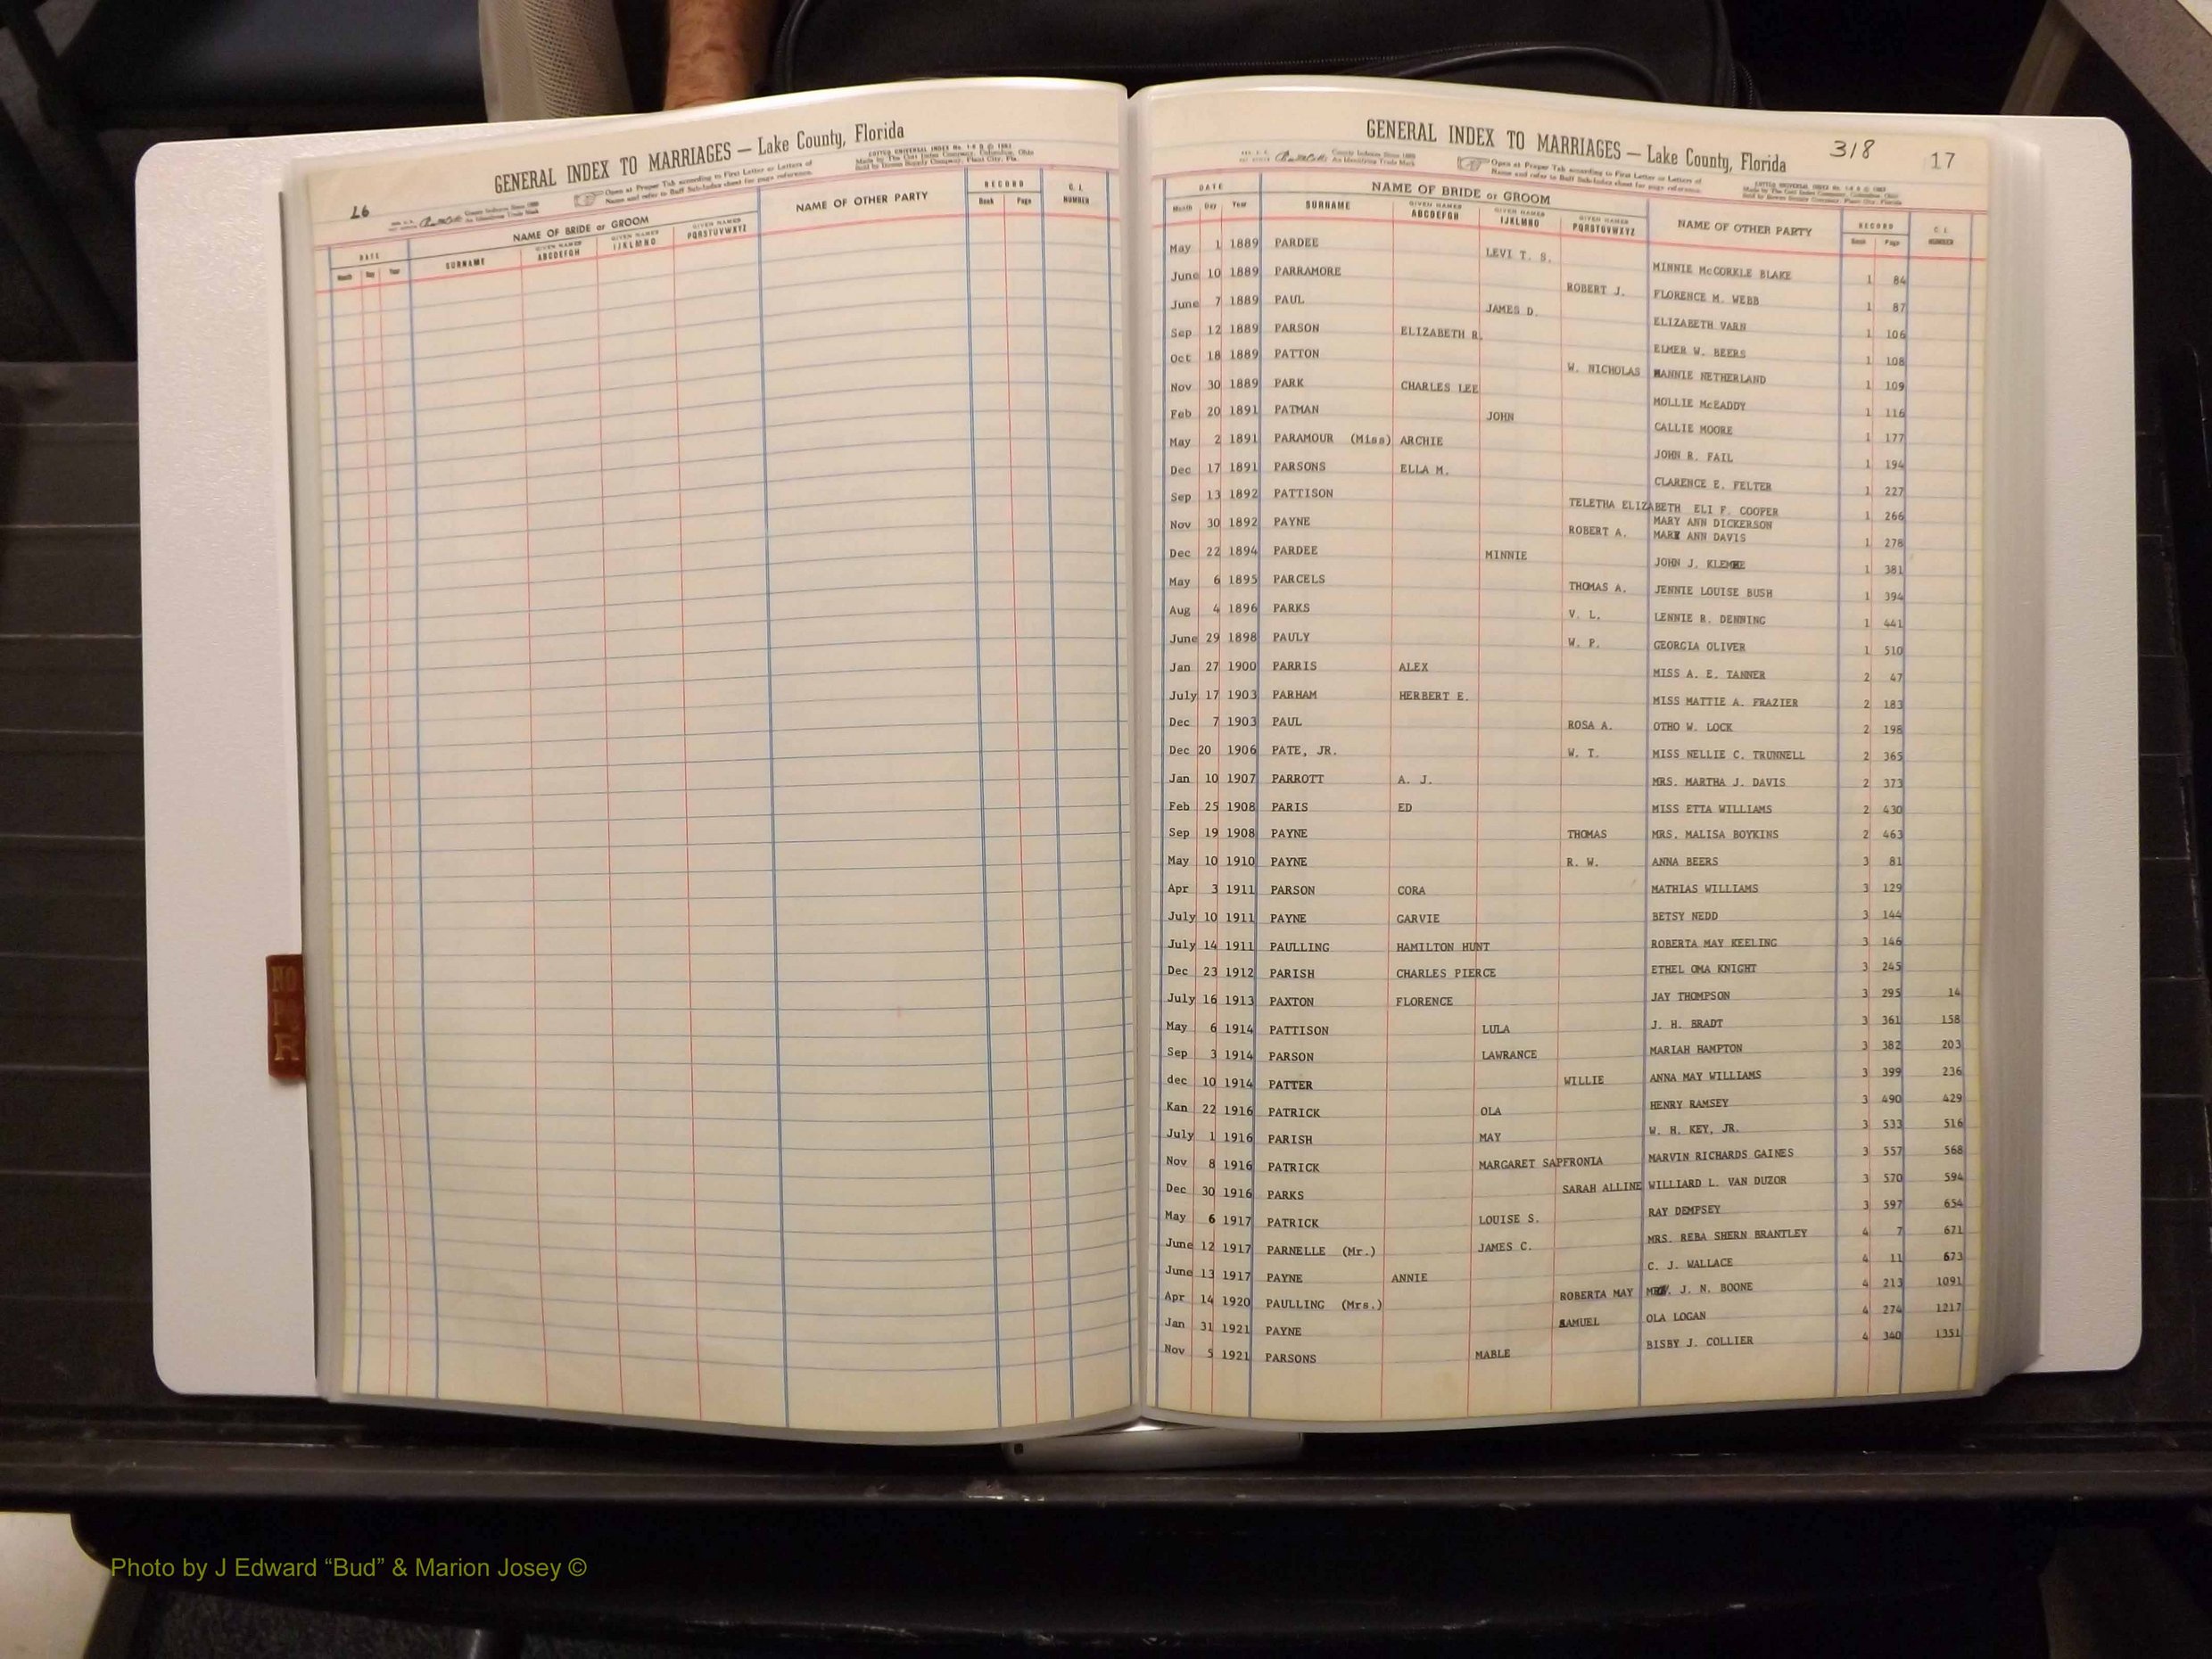 GENERAL INDEX TO MARRIAGES — Lake County, Florida
Open at Proper Tab according to First Letter or Letters of
Name and refer to Buff Sub-Index sheet for page reference.
DATE
NAME OF BRIDE or GROOM
NAME OF OTHER PARTY
RECORD
C. I.
NUMBER
Month Day Year SURNAME GIVEN NAMES ABCDEFGH GIVEN NAMES IJKLMNO GIVEN NAMES PQRSTUVWXYZ Book Page
HO
R
GENERAL INDEX TO MARRIAGES — Lake County, Florida
318
17
Open at Proper Tab according to First Letter or Letters of
Name and refer to Buff Sub-Index sheet for page reference.
DATE
NAME OF BRIDE or GROOM
NAME OF OTHER PARTY
RECORD
C. I.
NUMBER
Month Day Year SURNAME GIVEN NAMES ABCDEFGH GIVEN NAMES IJKLMNO GIVEN NAMES PQRSTUVWXYZ Book Page
May 1 1889 PARDEE LEVI T. S. MINNIE McCORKLE BLAKE 1 84
June 10 1889 PARRAMORE ROBERT J. FLORENCE M. WEBB 1 87
June 7 1889 PAUL JAMES D. ELIZABETH VARN 1 106
Sep 12 1889 PARSON ELIZABETH R. ELMER W. BEERS 1 108
Oct 18 1889 PATTON W. NICHOLAS NANNIE NETHERLAND 1 109
Nov 30 1889 PARK CHARLES LEE MOLLIE McEADDY 1 116
Feb 20 1891 PATMAN JOHN CALLIE MOORE 1 177
May 2 1891 PARAMOUR (Miss) ARCHIE JOHN R. FAIL 1 194
Dec 17 1891 PARSONS ELLA M. CLARENCE E. FELTER 1 227
Sep 13 1892 PATTISON TELETHA ELIZABETH ELI F. COOPER 1 266
Nov 30 1892 PAYNE ROBERT A. MARY ANN DICKERSON
MARY ANN DAVIS 1 278
Dec 22 1894 PARDEE MINNIE JOHN J. 1 381
May 6 1895 PARCELS THOMAS A. JENNIE LOUISE BUSH 1 394
Aug 4 1896 PARKS V. L. LENNIE R. DENNING 1 441
June 29 1898 PAULY W. P. GEORGIA OLIVER 1 510
Jan 27 1900 PARRIS ALEX MISS A. E. TANNER 2 47
July 17 1903 PARHAM HERBERT E. MISS MATTIE A. FRAZIER 2 183
Dec 7 1903 PAUL ROSA A. OTHO W. LOCK 2 198
Dec 20 1906 PATE, JR. W. T. MISS NELLIE C. TRUNNELL 2 365
Jan 10 1907 PARROTT A. J. MRS. MARTHA J. DAVIS 2 373
Feb 25 1908 PARIS ED MISS ETTA WILLIAMS 2 430
Sep 19 1908 PAYNE THOMAS MRS. MALISA BOYKINS 2 463
May 10 1910 PAYNE R. W. ANNA BEERS 3 81
Apr 3 1911 PARSON CORA MATHIAS WILLIAMS 3 129
July 10 1911 PAYNE GARVIE BETSY NEDD 3 144
July 14 1911 PAULLING HAMILTON HUNT ROBERTA MAY KEELING 3 146
Dec 23 1912 PARISH CHARLES PIERCE ETHEL OMA KNIGHT 3 245
July 16 1913 PAXTON FLORENCE JAY THOMPSON 3 295 14
May 6 1914 PATTISON LULA J. H. BRADT 3 361 158
Sep 3 1914 PARSON LAWRANCE MARIAH HAMPTON 3 382 203
dec 10 1914 PATTER WILLIE ANNA MAY WILLIAMS 3 399 236
Kan 22 1916 PATRICK OLA HENRY RAMSEY 3 490 429
July 1 1916 PARISH MAY W. H. KEY, JR. 3 533 516
Nov 8 1916 PATRICK MARGARET SAPFRONIA MARVIN RICHARDS GAINES 3 557 568
Dec 30 1916 PARKS SARAH ALLINE WILLIARD L. VAN DUZOR 3 570 594
May 6 1917 PATRICK LOUISE S. RAY DEMPSEY 3 597 654
June 12 1917 PARNELLE (Mr.) JAMES C. MRS. REBA SHERN BRANTLEY 4 7 671
June 13 1917 PAYNE ANNIE C. J. WALLACE 4 11 673
Apr 14 1920 PAULLING (Mrs.) ROBERTA MAY J. N. BOONE 4 213 1091
Jan 31 1921 PAYNE SAMUEL OLA LOGAN 4 274 1217
Nov 5 1921 PARSONS MABLE BISBY J. COLLIER 4 340 1351
Photo by J Edward “Bud” & Marion Josey ©